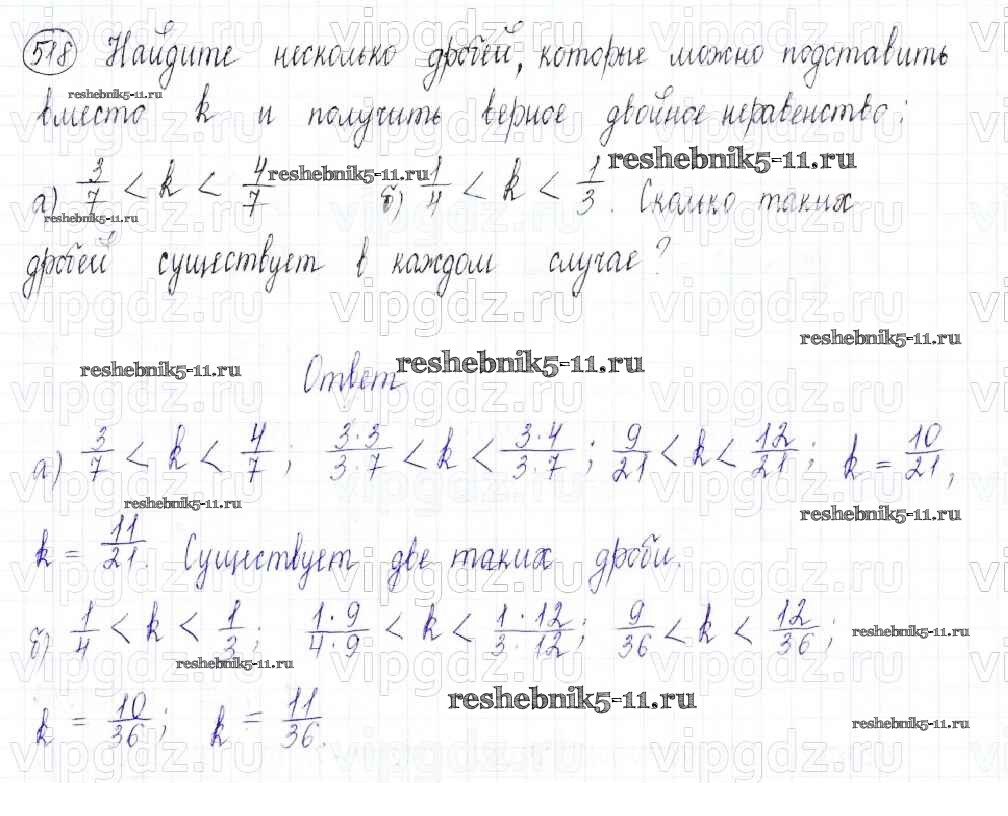 518 Найдите несколько дробей, которые можно подставить
вместо k и получить верное двойное неравенство:
а) 3/7 < k < 4/7 б) 1/4 < k < 1/3. Сколько таких
дробей существует в каждом случае?
Ответ
а) 3/7 < k < 4/7; 3·3/3·7 < k < 3·4/3·7; 9/21 < k < 12/21; k = 10/21,
k = 11/21. Существует две таких дроби.
б) 1/4 < k < 1/3; 1·9/4·9 < k < 1·12/3·12; 9/36 < k < 12/36;
k = 10/36; k = 11/36.
reshebnik5-11.ru
vipgdz.ru